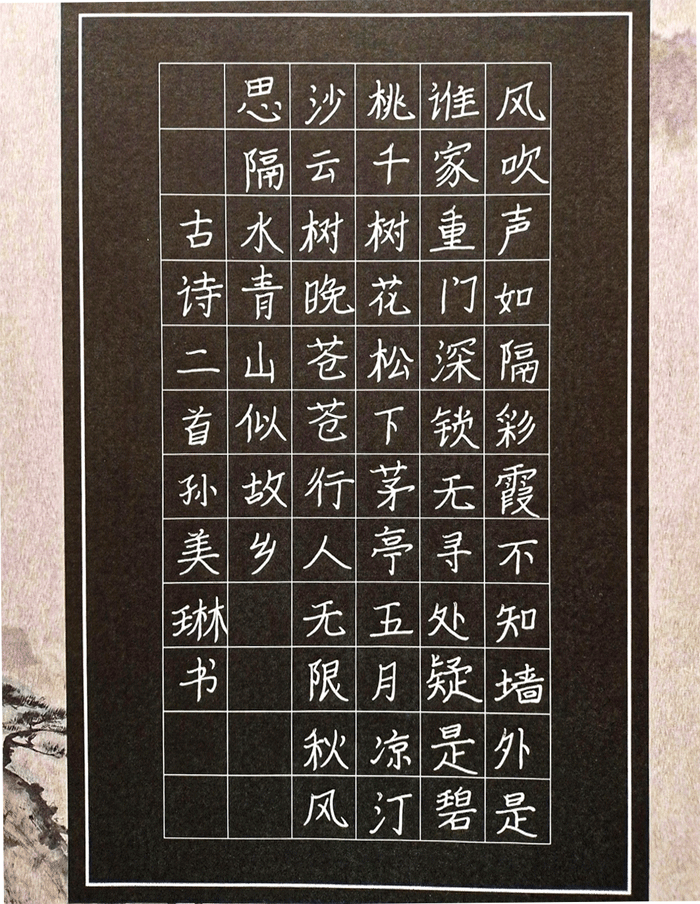 风吹声如隔彩霞不知墙外是
谁家重门深锁无寻处疑是碧
桃千树花松下茅亭五月凉汀
沙云树晚苍苍行人无限秋风
思隔水青山似故乡
古诗二首孙美琳书